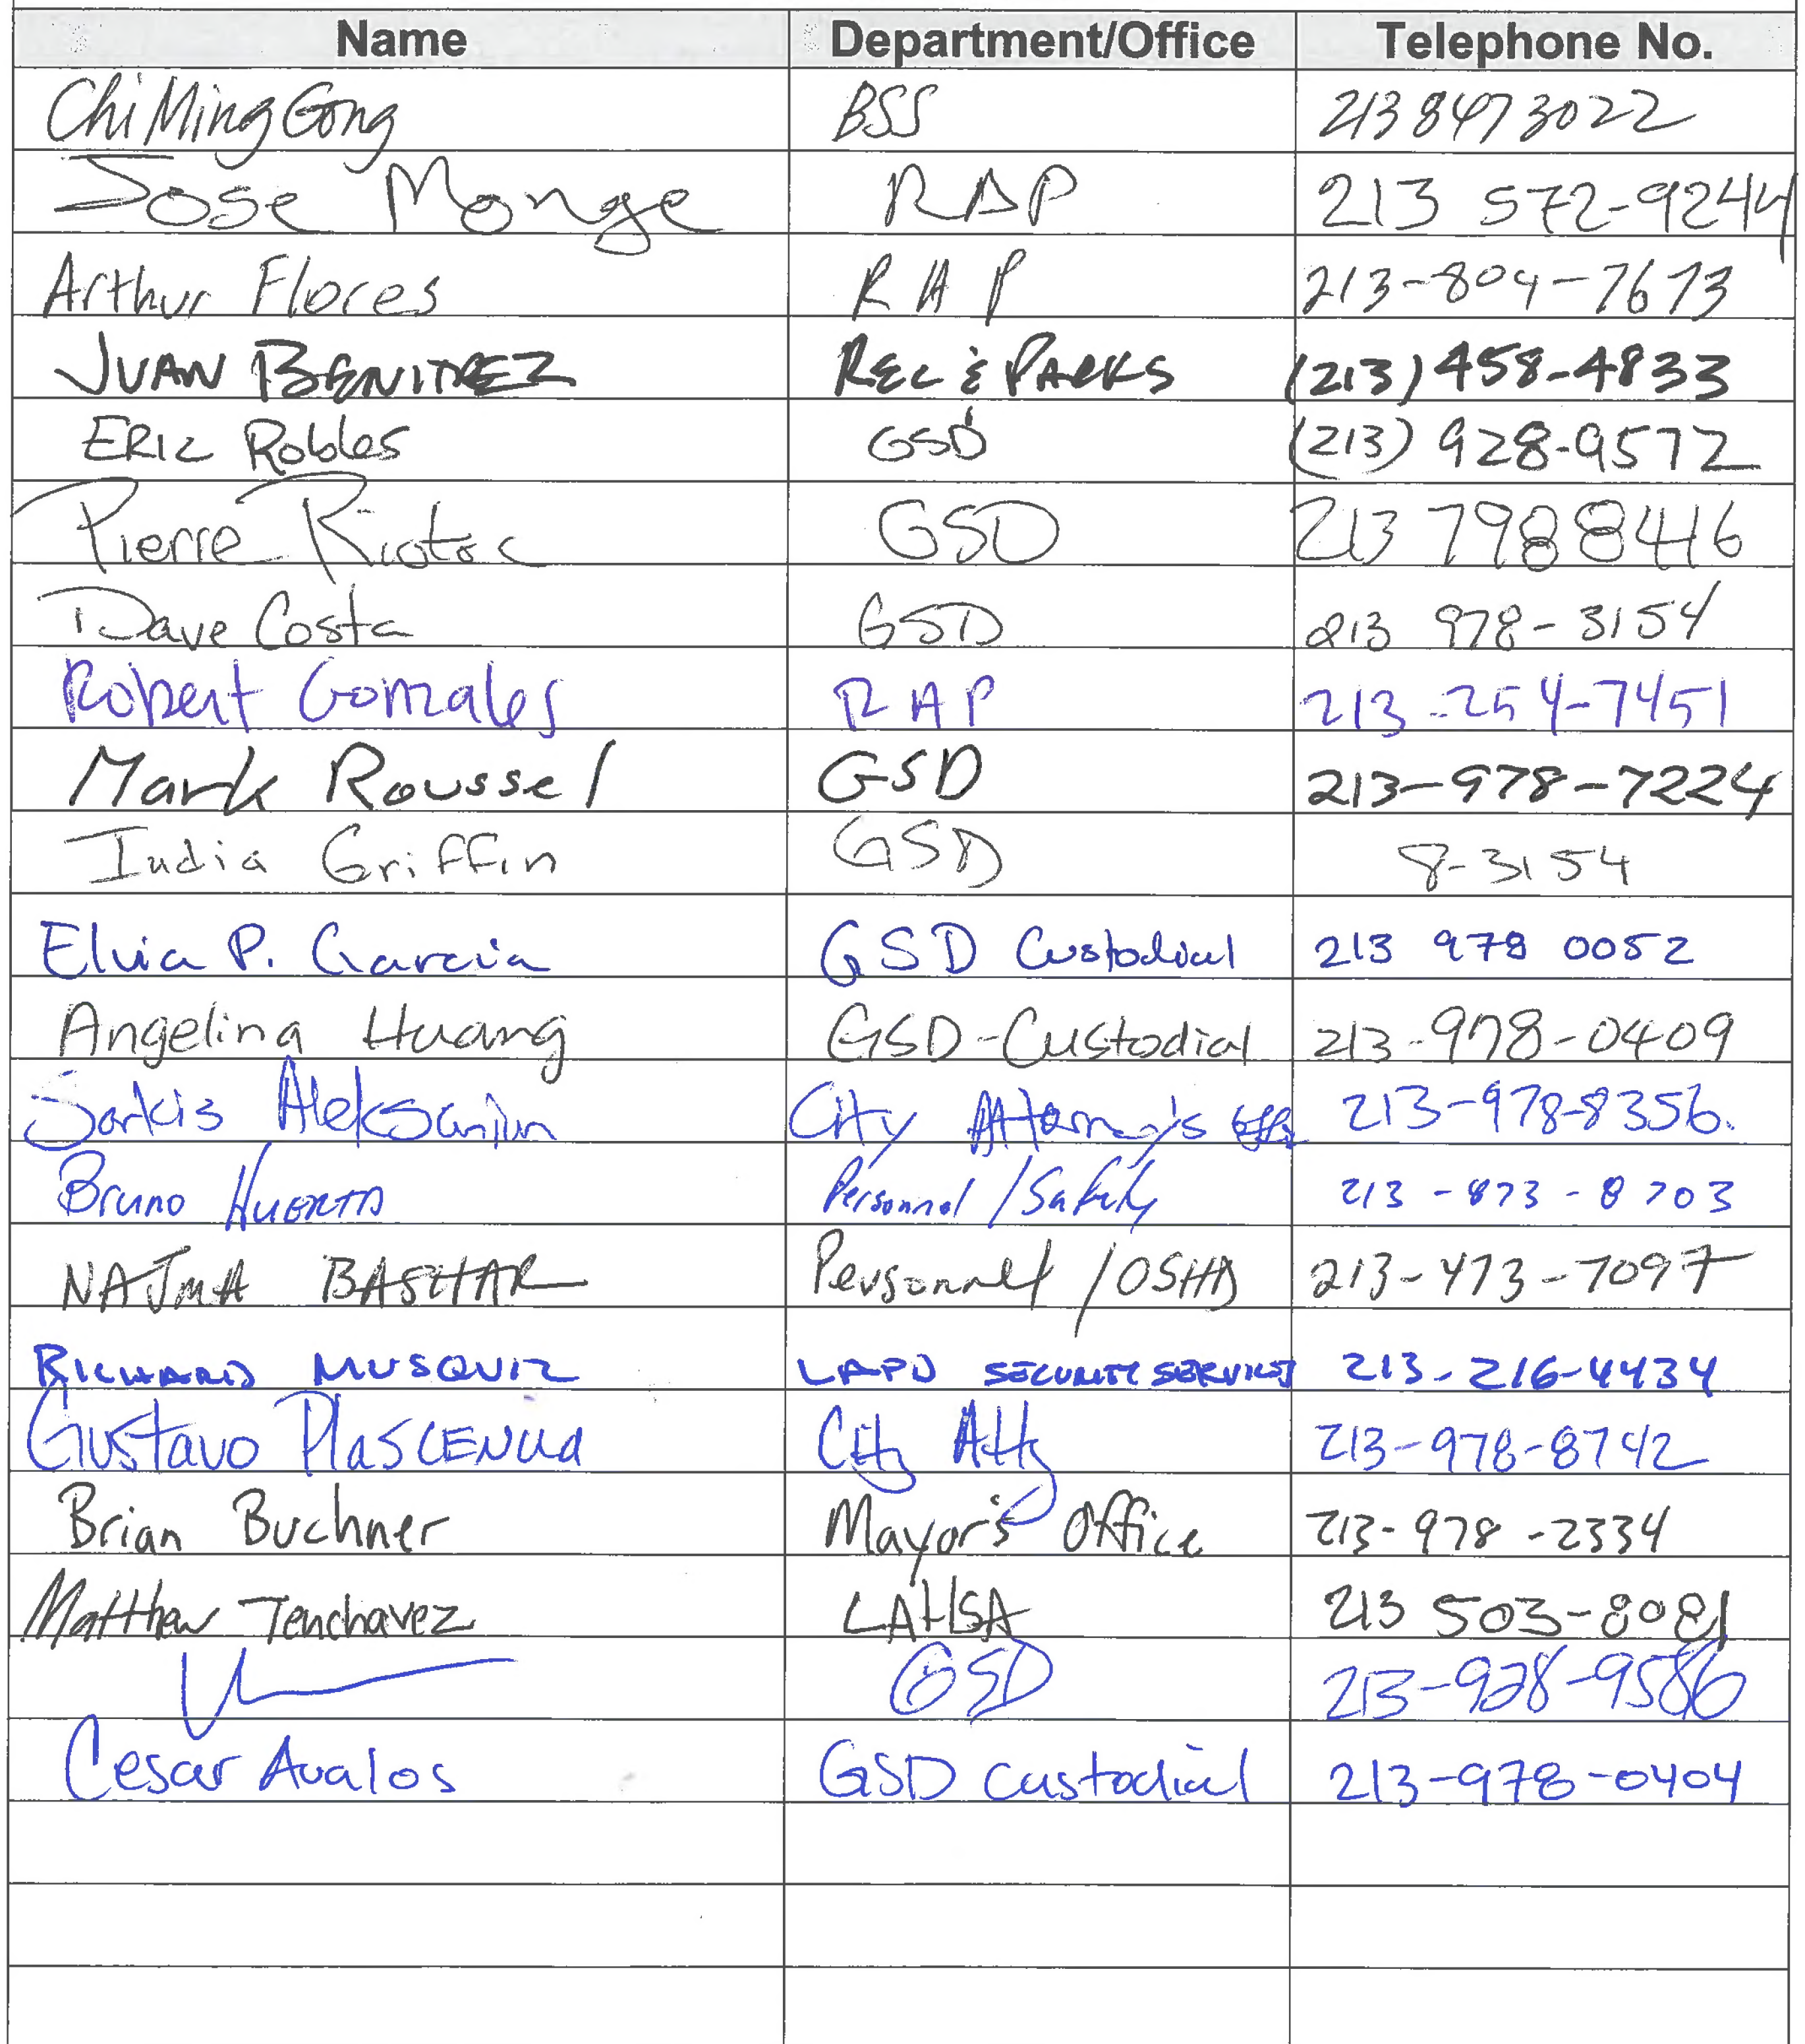 Name Department/Office Telephone No.
Chi Ming Gong BSS 213 847 3022
Jose Monge RAP 213 572-9244
Arthur Flores RAP 213-804-7673
JUAN BENITEZ REC & PARKS (213) 458-4833
ERIC Robles GSD (213) 928-9572
Pierre GSD 213 798 8446
Dave Costa GSD 213 978-3154
Robert Gonzales RAP 213-254-7451
Mark Roussel GSD 213-978-7224
India Griffin GSD 8-3154
Elvia P. Garcia GSD Custodial 213 978 0052
Angelina Huang GSD-Custodial 213-978-0409
Sarkis Aleksanian City Attorney's 213-978-8356.
Bruno HUERTA Personnel/Safety 213-873-8703
NAJMA BASHAR Personnel/OSHA 213-473-7097
RICHARD MUSQUIZ LAPD SECURITY SERVICES 213-216-4434
GUSTavo PlaSCENCIa City Atty 213-978-8742
Brian Buchner Mayor's Office 213-978-2334
Matthew Tenchavez LAHSA 213 503-8081
GSD 213-928-9586
Cesar Avalos GSD custodial 213-978-0404